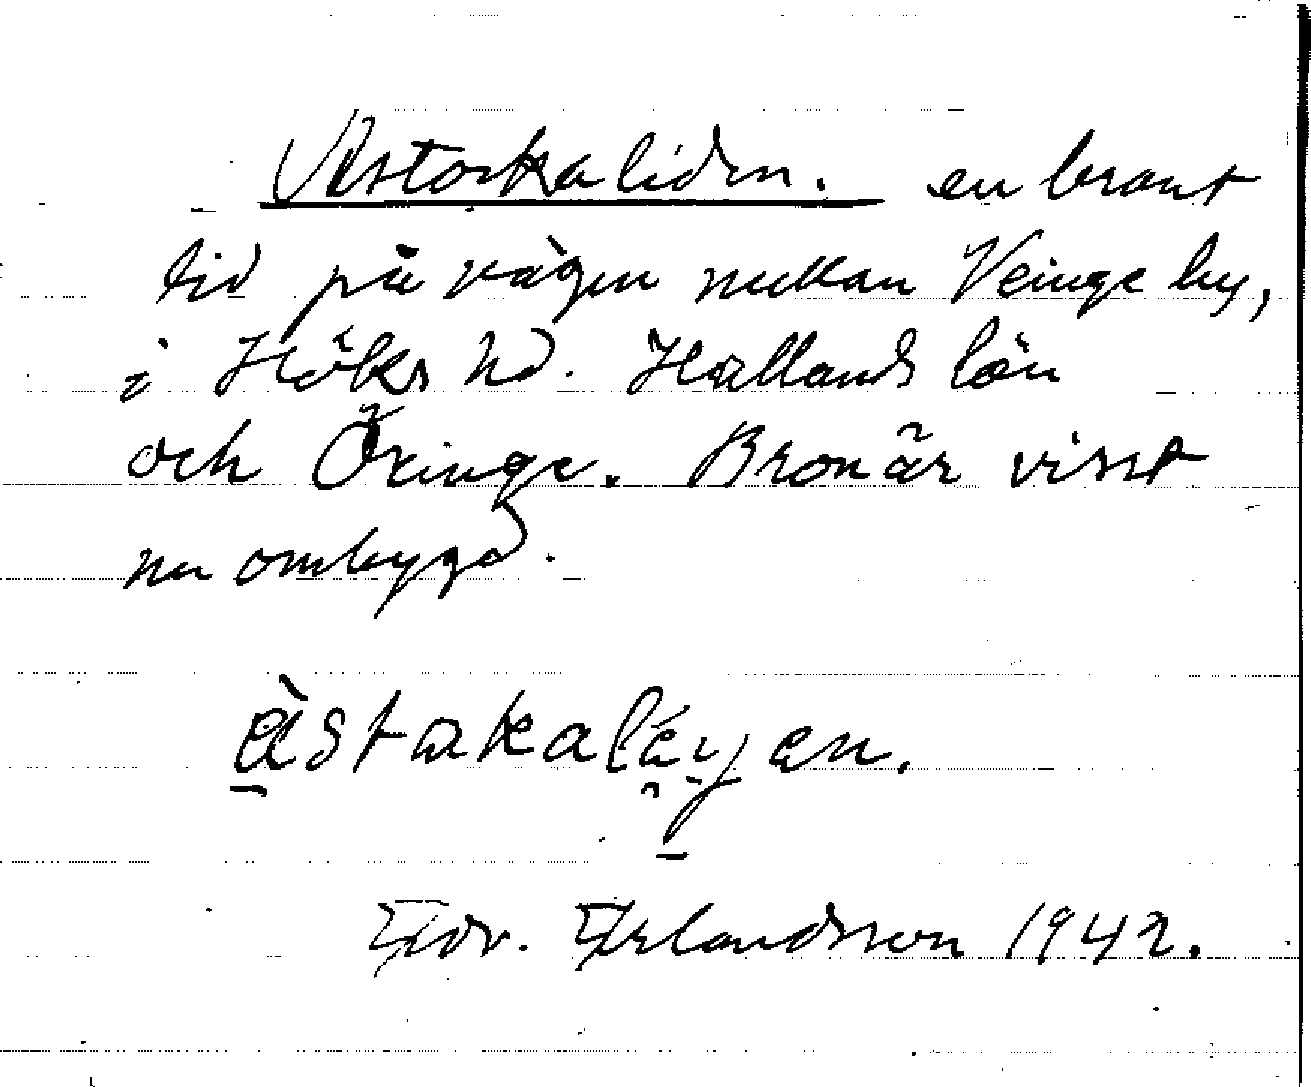 Astorkaliden. en brant
lid på vägen mellan Veinge by,
i Höks hd. Hallands län
och Öringe. Bron är visst
nu ombygd.
àstakaláyen.
Edv. Erlandsson 1942.